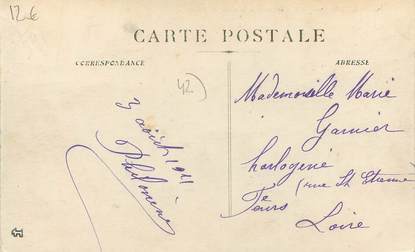 12 €
CARTE POSTALE
CORRESPONDANCE
ADRESSE
42
3 août 1911
Philomène
Mademoiselle Marie
Garnier
horlogerie
(rue St Etienne
Feurs
Loire